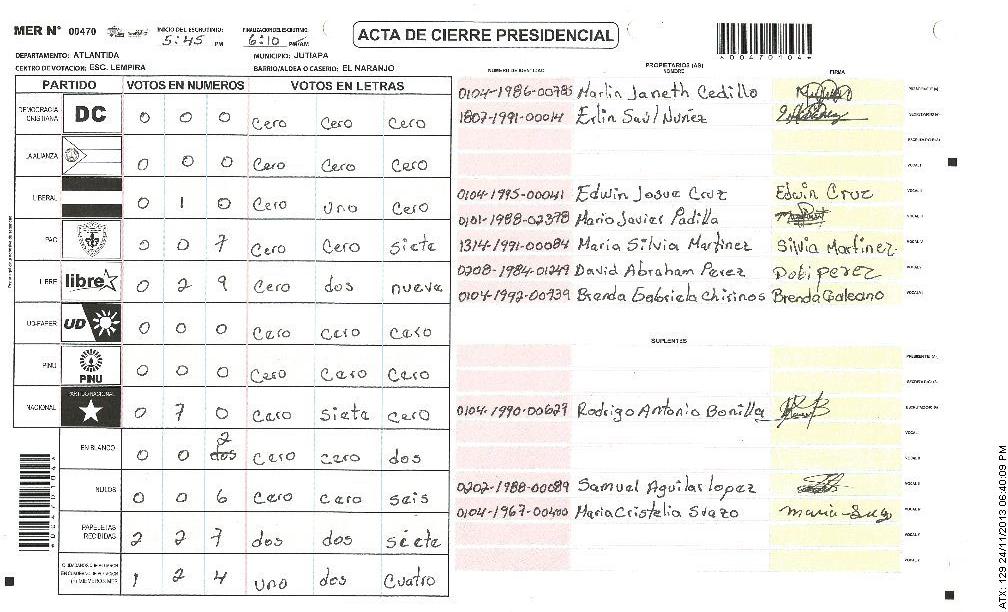 MER N° 00470 INICIO DEL ESCRUTINIO: 5:45 PM FINALIZACION DEL ESCRUTINIO: 6:10 PM/AM
ACTA DE CIERRE PRESIDENCIAL
DEPARTAMENTO: ATLANTIDA MUNICIPIO: JUTIAPA
CENTRO DE VOTACION: ESC. LEMPIRA BARRIO/ALDEA O CASERIO: EL NARANJO
PARTIDO VOTOS EN NUMEROS VOTOS EN LETRAS
DEMOCRACIA CRISTIANA DC 0 0 0 Cero Cero Cero
LA ALIANZA 0 0 0 Cero Cero Cero
LIBERAL 0 1 0 Cero uno Cero
PAC 0 0 7 Cero Cero Siete
LIBRE libre 0 2 9 Cero dos nueve
UD-FAPER UD 0 0 0 Cero Cero Cero
PINU PINU 0 0 0 Cero Cero Cero
NACIONAL PARTIDO NACIONAL 0 7 0 Cero Siete Cero
EN BLANCO 0 0 dos 2 Cero Cero dos
NULOS 0 0 6 Cero Cero seis
PAPELETAS RECIBIDAS 2 2 7 dos dos siete
1 2 4 uno dos Cuatro
*00470104*
NUMERO DE IDENTIDAD PROPIETARIOS (AS) NOMBRE FIRMA
0104-1986-00785 Marlin Janeth Cedillo
1807-1991-00014 Erlin Saúl Nuñez
0104-1995-00041 Edwin Josue Cruz Edwin Cruz
0101-1988-02378 Mario Javier Padilla
1314-1991-00084 Maria Silvia Martinez Silvia Martinez
0208-1984-01249 David Abraham Perez
0104-1992-00739 Brenda Gabriela Chirinos Brenda Galeano
SUPLENTES
0104-1990-00629 Rodrigo Antonio Bonilla
0202-1988-00089 Samuel Aguilar Lopez
0104-1967-00400 Maria Cristelia Suazo
ATX: 129 24/11/2013 06:40:09 PM